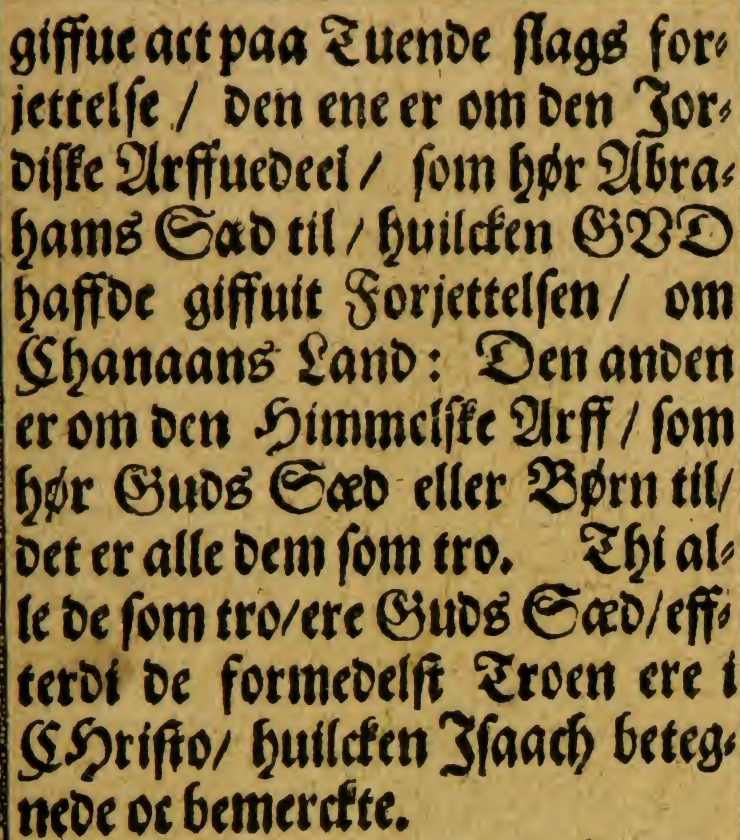 giffue act paa Tuende slags for-
jettelse / den ene er om den Jor-
diske Arffuedeel / som hør Abra-
hams Sæd til / huilcken GVD
haffde giffuit Forjettelsen / om
Chanaans Land: Den anden
er om den Himmelske Arff / som
hør Guds Sæd eller Børn til/
det er alle dem som tro. Thi al-
le de som tro/ere Guds Sæd/eff-
terdi de formedelst Troen ere i
CHristo/ huilcken Isaach beteg-
nede oc bemerckte.